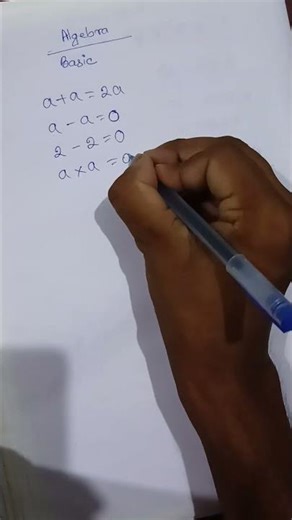 Algebra
Basic
a+a=2a
a-a=0
2-2=0
a×a=a